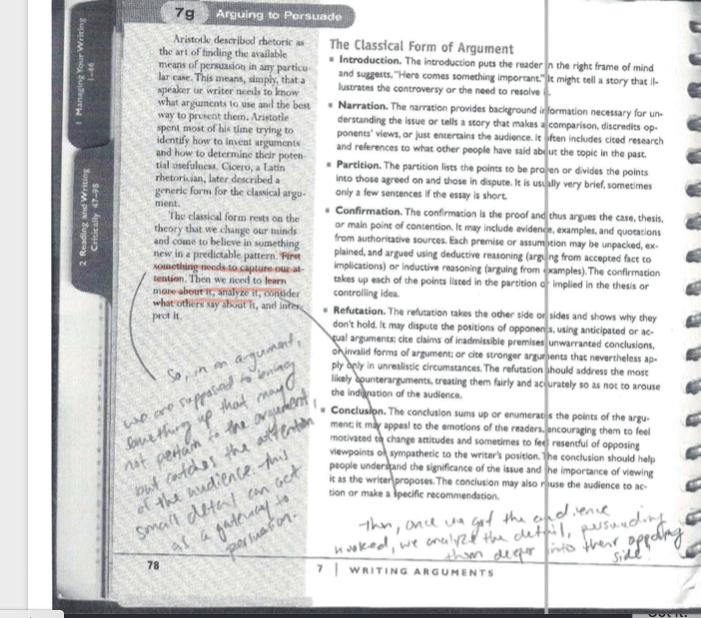 7g Arguing to Persuade
1 Managing Your Writing
1–46
2 Reading and Writing
Critically 47–98
Aristotle described rhetoric as
the art of finding the available
means of persuasion in any particu-
lar case. This means, simply, that a
speaker or writer needs to know
what arguments to use and the best
way to present them. Aristotle
spent most of his time trying to
identify how to invent arguments
and how to determine their poten-
tial usefulness. Cicero, a Latin
rhetorician, later described a
generic form for the classical argu-
ment.
The classical form rests on the
theory that we change our minds
and come to believe in something
new in a predictable pattern. First
something needs to capture our at-
tention. Then we need to learn
more about it, analyze it, consider
what others say about it, and inter-
pret it.
So, in an argument,
we are supposed to bring
something up that may
not pertain to the argument
but catches the attention
of the audience. This
small detail can act
as a gateway to
persuasion.
The Classical Form of Argument
▪ Introduction. The introduction puts the reader in the right frame of mind
and suggests, "Here comes something important." It might tell a story that il-
lustrates the controversy or the need to resolve
▪ Narration. The narration provides background information necessary for un-
derstanding the issue or tells a story that makes a comparison, discredits op-
ponents' views, or just entertains the audience. It often includes cited research
and references to what other people have said about the topic in the past.
▪ Partition. The partition lists the points to be proven or divides the points
into those agreed on and those in dispute. It is usually very brief, sometimes
only a few sentences if the essay is short.
▪ Confirmation. The confirmation is the proof and thus argues the case, thesis,
or main point of contention. It may include evidence, examples, and quotations
from authoritative sources. Each premise or assumption may be unpacked, ex-
plained, and argued using deductive reasoning (arguing from accepted fact to
implications) or inductive reasoning (arguing from examples). The confirmation
takes up each of the points listed in the partition or implied in the thesis or
controlling idea.
▪ Refutation. The refutation takes the other side or sides and shows why they
don't hold. It may dispute the positions of opponents, using anticipated or ac-
tual arguments; cite claims of inadmissible premises, unwarranted conclusions,
or invalid forms of argument; or cite stronger arguments that nevertheless ap-
ply only in unrealistic circumstances. The refutation should address the most
likely counterarguments, treating them fairly and accurately so as not to arouse
the indignation of the audience.
▪ Conclusion. The conclusion sums up or enumerates the points of the argu-
ment; it may appeal to the emotions of the readers, encouraging them to feel
motivated to change attitudes and sometimes to feel resentful of opposing
viewpoints or sympathetic to the writer's position. The conclusion should help
people understand the significance of the issue and the importance of viewing
it as the writer proposes. The conclusion may also rouse the audience to ac-
tion or make a specific recommendation.
Then, once we got the audience
hooked, we analyze the detail, persuading
them deeper into their opposing
side.
78
7 | WRITING ARGUMENTS